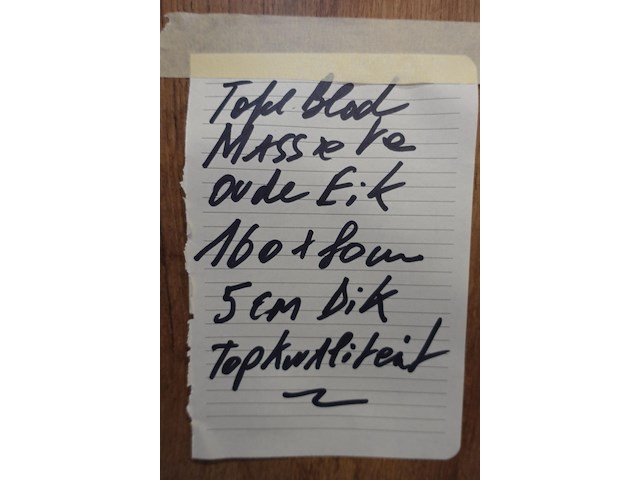 Tafel blad
MASSieve
oude Eik
160 + 80 cm
5 cm Dik
TopkwAliteit